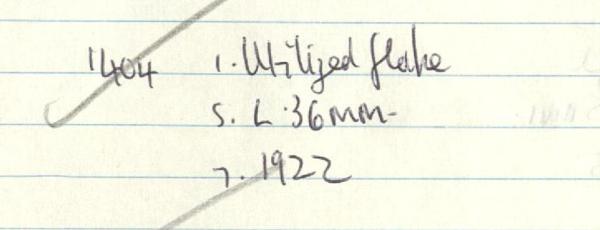 1404 1. Utilized flake
5. L. 36mm-
7. 1922